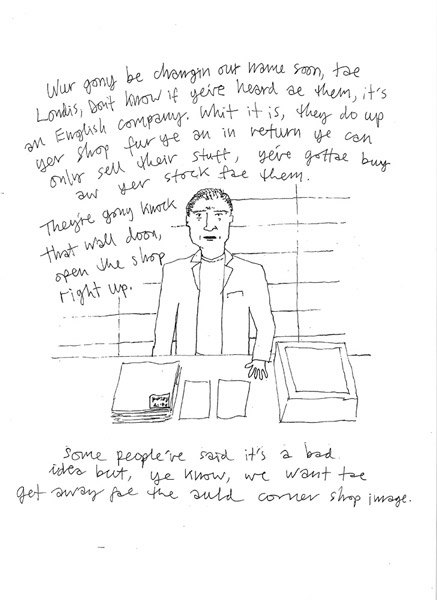 Wur gony be changin our name soon, tae
Londis, Dont know if yeive heard ae them, it's
an English company. Whit it is, they do up
yer shop fur ye an in return ye can
only sell their stuff, yeive gottae buy
aw yer stock fae them.
They're gony knock
that wall doon,
open the shop
right up.
Some people've said it's a bad
idea but, ye know, we want tae
get away fae the auld corner shop image.